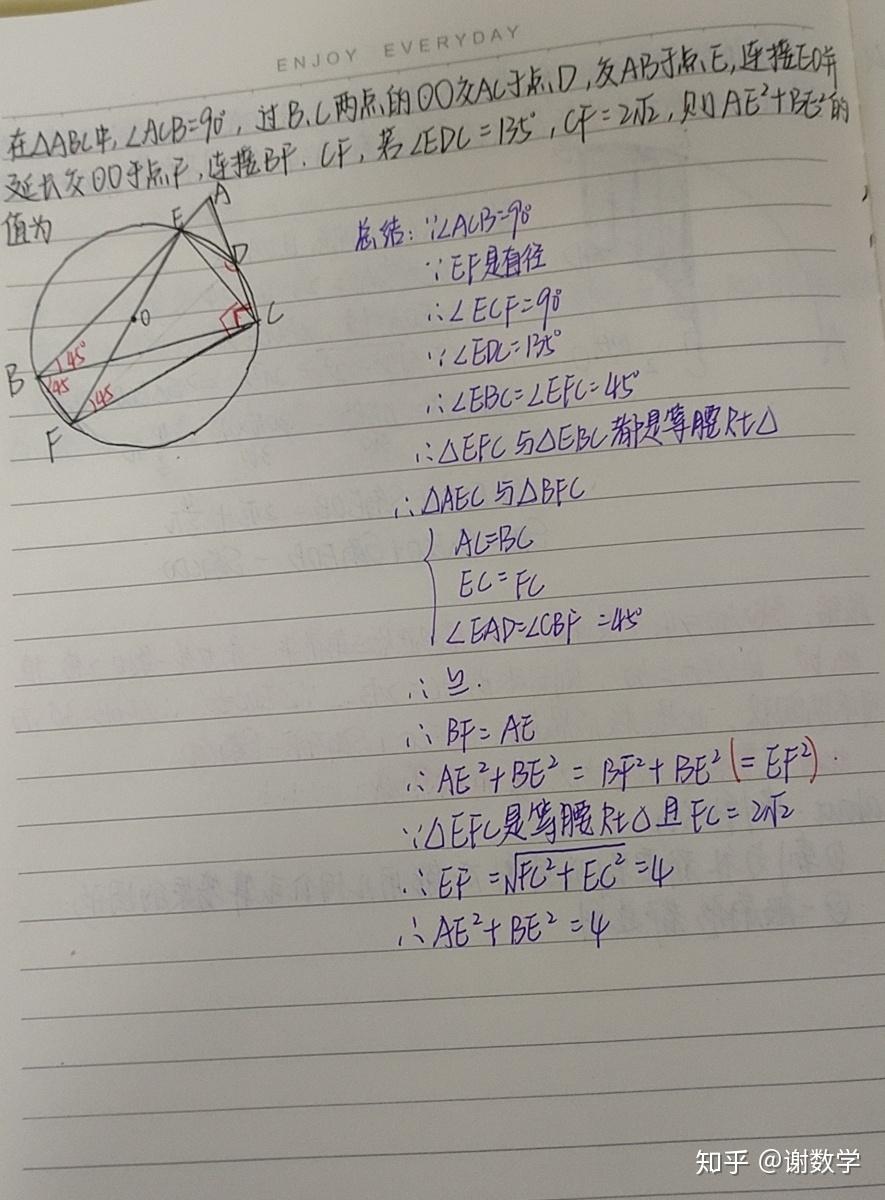 ENJOY EVERYDAY
在△ABC中,∠ACB=90°,过B、C两点的⊙O交AC于点D,交AB于点E,连接EO并
延长交⊙O于点F,连接BF、CF,若∠EDC=135°,CF=2√2,则AE²+BE²的
值为
A
E
D
O
C
B
45°
45
45
F
总结:∵∠ACB=90°
∵EF是直径
∴∠ECF=90°
∵∠EDC=135°
∴∠EBC=∠EFC=45°
∴△EFC与△EBC都是等腰Rt△
∴△AEC与△BFC
AC=BC
EC=FC
∠EAD=∠CBF=45°
∴≌.
∴BF=AE
∴AE²+BE²=BF²+BE²(=EF²).
∵△EFC是等腰Rt△且FC=2√2
∴EF=√FC²+EC²=4
∴AE²+BE²=4
知乎 @谢数学